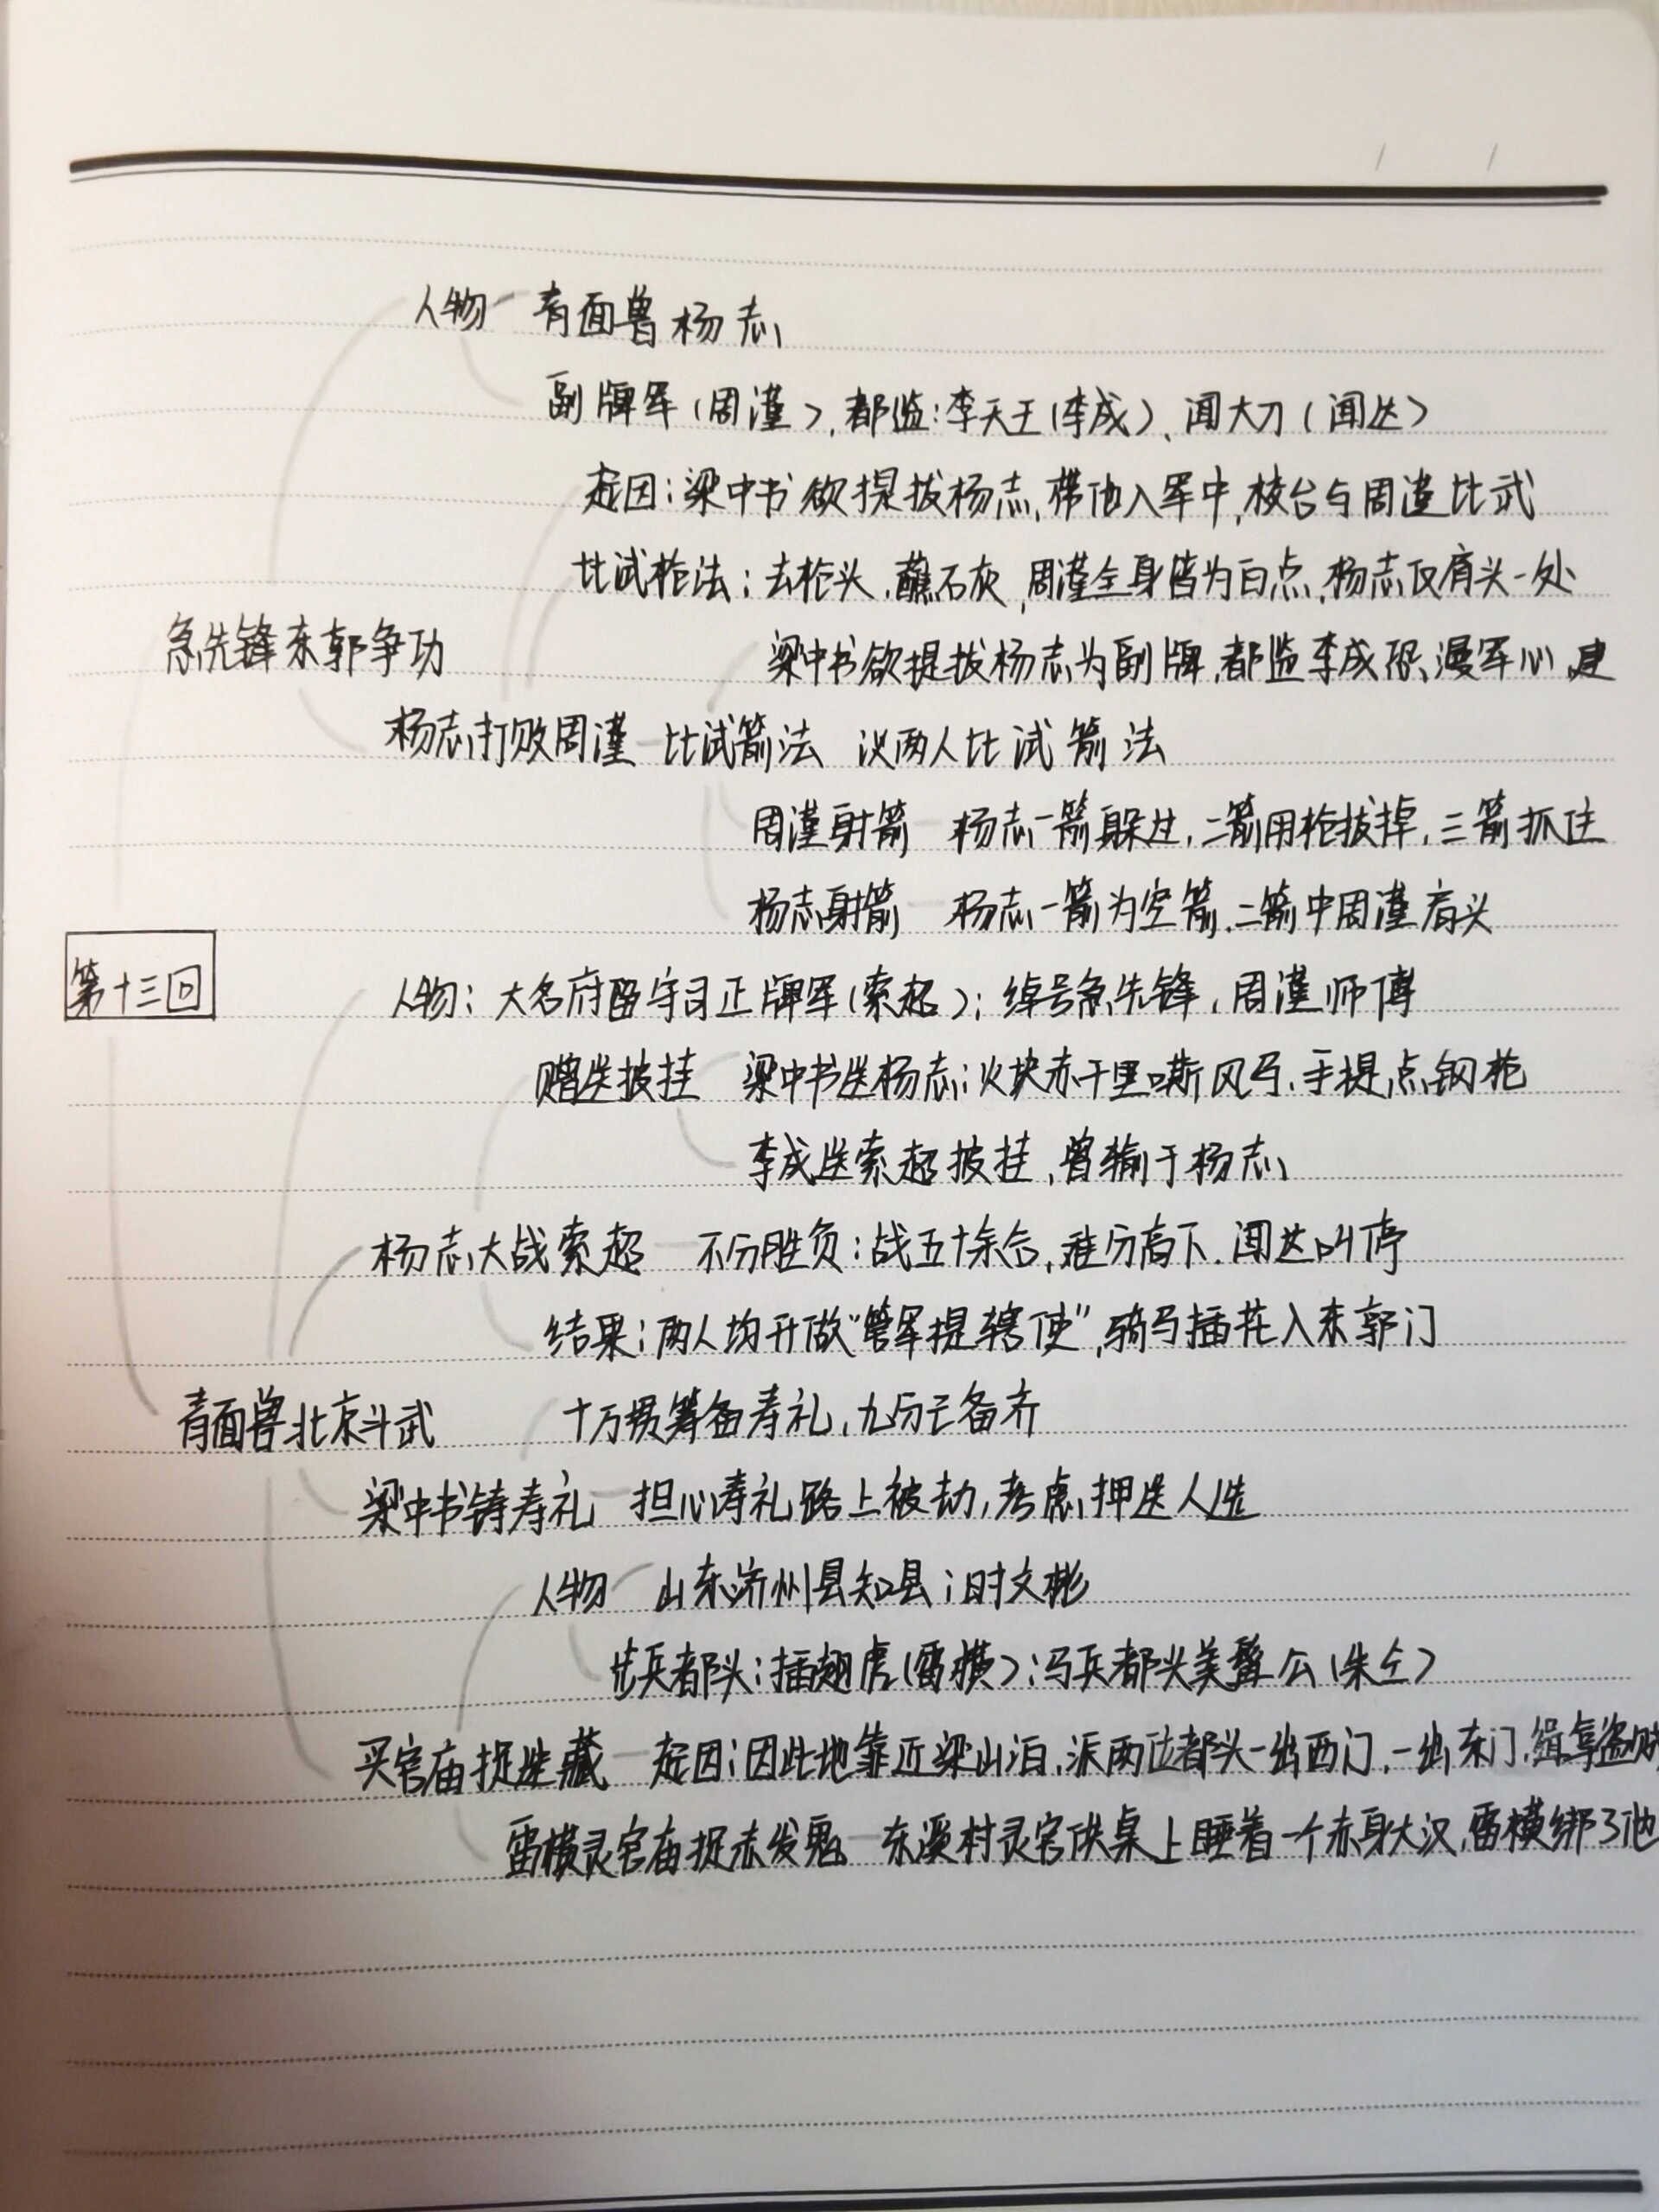 人物 青面兽杨志
副牌军(周谨),都监:李天王(李成)、闻大刀(闻达)
起因:梁中书欲提拔杨志,带他入军中,校台与周谨比武
比试枪法:去枪头,蘸石灰,周谨全身皆为白点,杨志仅肩头一处
急先锋东郭争功
梁中书欲提拔杨志为副牌,都监李成恐漫军心,建
杨志打败周谨 比试箭法 议两人比试箭法
周谨射箭 杨志一箭躲过,二箭用枪拔掉,三箭抓住
杨志射箭 杨志一箭为空箭,二箭中周谨肩头
第十三回
人物:大名府留守司正牌军(索超);绰号急先锋,周谨师傅
赠送披挂 梁中书送杨志:火块赤千里嘶风马,手提点钢枪
李成送索超披挂,曾输于杨志
杨志大战索超 不分胜负:战五十余合,难分高下,闻达叫停
结果:两人均升做“管军提辖使”,骑马插花入东郭门
青面兽北京斗武
十万贯筹备寿礼,九分已备齐
梁中书铸寿礼 担心寿礼路上被劫,考虑押送人选
人物 山东济州县知县:时文彬
步兵都头:插翅虎(雷横):马兵都头美髯公(朱仝)
买官庙捉迷藏 起因:因此地靠近梁山泊,派两位都头一出西门,一出东门,缉拿盗贼
雷横灵官庙捉赤发鬼 东溪村灵官供桌上睡着一个赤身大汉,雷横绑了他